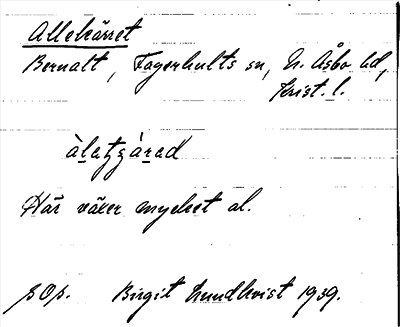 Allekärret
Bernalt, Fagerhults sn, N. Åsbo hd,
Krist. l.
Här växer mycket al.
sOp. Birgit Lundkvist 1939.